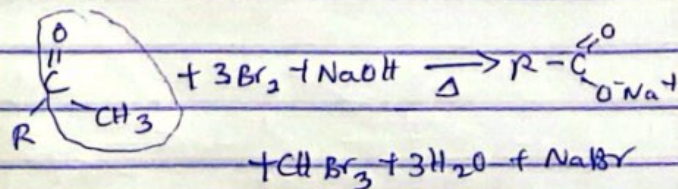 O
||
C
R CH3 + 3Br2 + NaOH →Δ R-C=O
O⁻Na⁺
+CHBr3 + 3H2O + NaBr